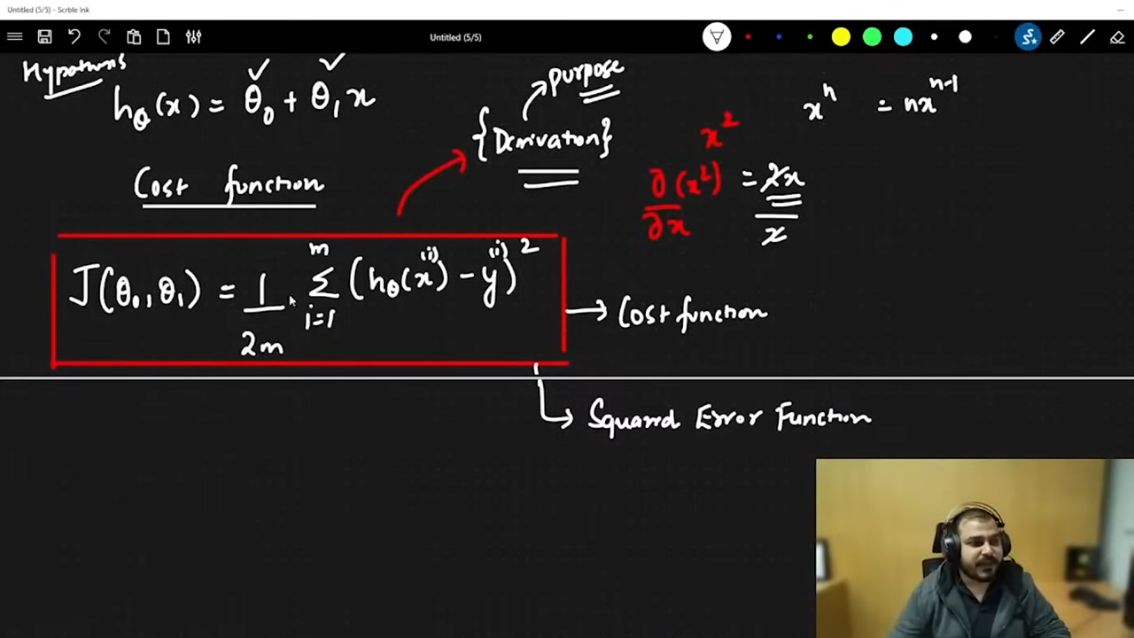 Untitled (5/5) - Scrble Ink
Untitled (5/5)
Hypothesis
hθ(x) = θ₀ + θ₁ x
Purpose
{Derivation}
xⁿ = nxⁿ⁻¹
x²
∂(x²)/∂x = 2x
x
Cost function
J(θ₀,θ₁) = 1/2m · Σ (i=1 to m) (hθ(x)⁽ⁱ⁾ - y⁽ⁱ⁾)²
Cost function
Squared Error Function